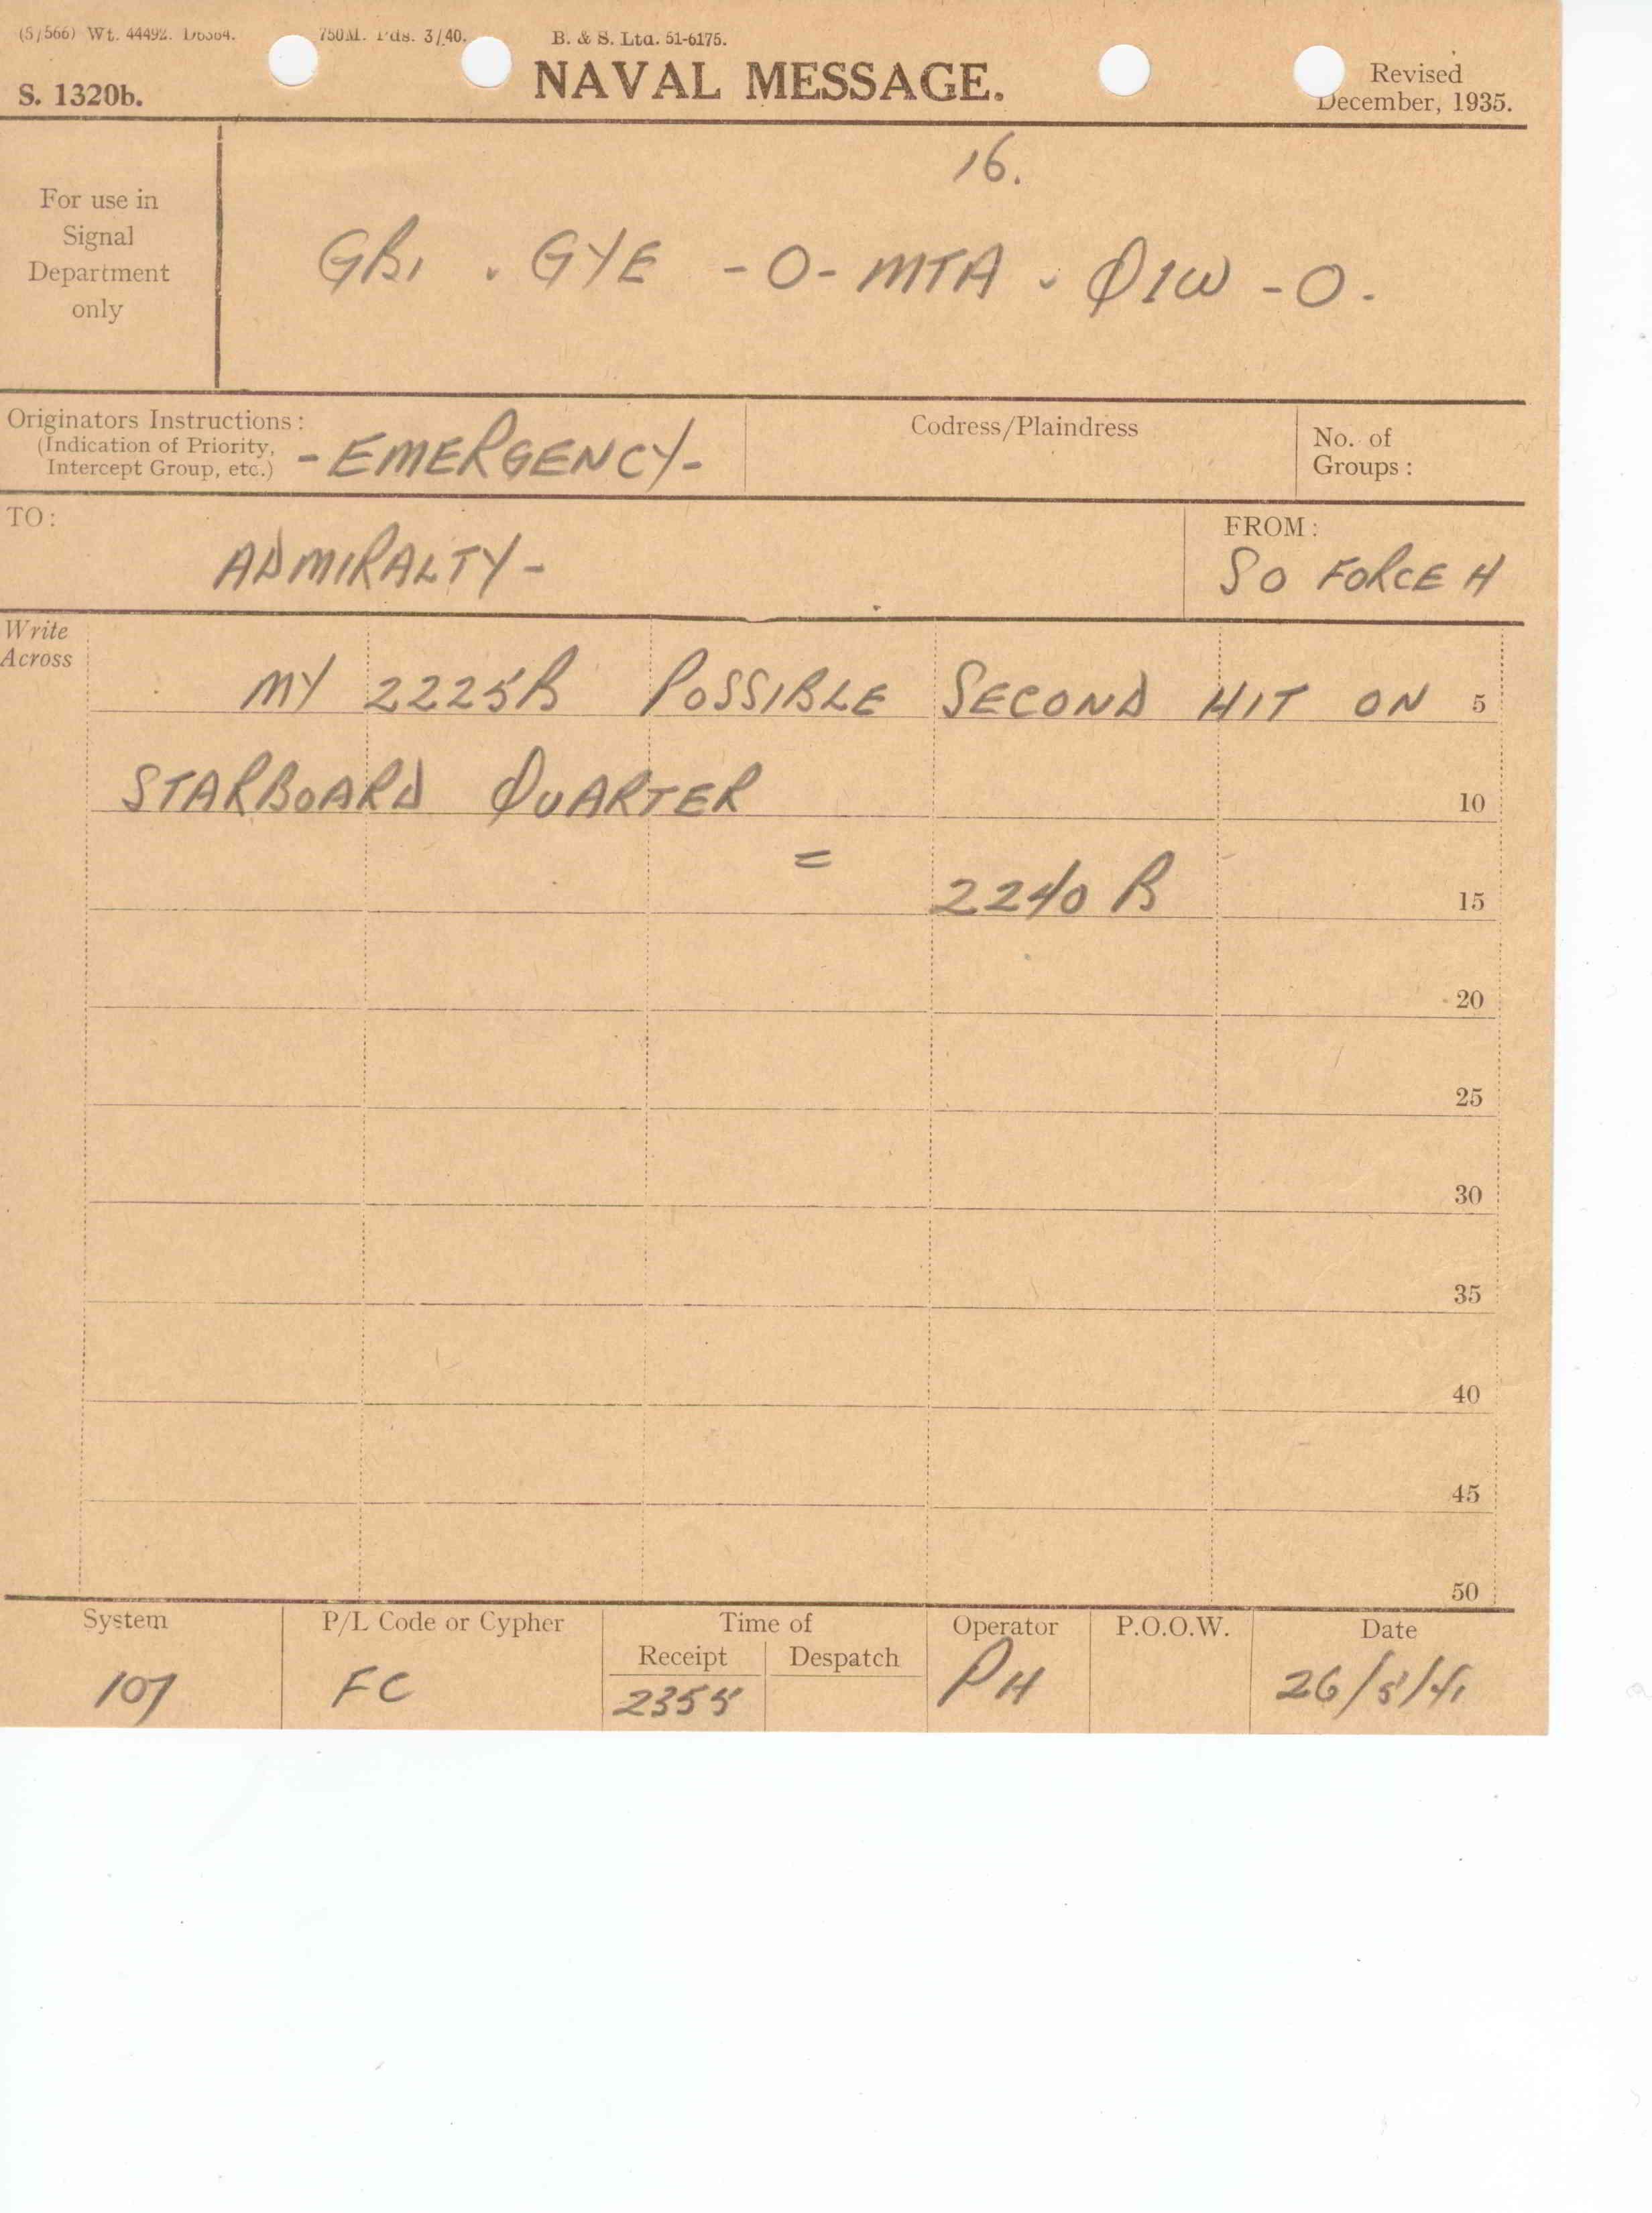 (5/566) Wt. 44492. D6364. 750M. Pds. 3/40. B. & S. Ltd. 51-6175.
S. 1320b.
NAVAL MESSAGE.
Revised
December, 1935.
16.
For use in
Signal
Department
only
GB1 . GYE - O - MTA . Q1W - O .
Originators Instructions :
(Indication of Priority,
Intercept Group, etc.)
- EMERGENCY -
Codress/Plaindress
No. of
Groups :
TO :
ADMIRALTY -
FROM :
SO FORCE H
Write
Across
MY 2225B POSSIBLE SECOND HIT ON 5
STARBOARD QUARTER
10
=
2240 B 15
20
25
30
35
40
45
50
System P/L Code or Cypher Time of Operator P.O.O.W. Date
Receipt Despatch
107 FC 2355 PH 26/5/41